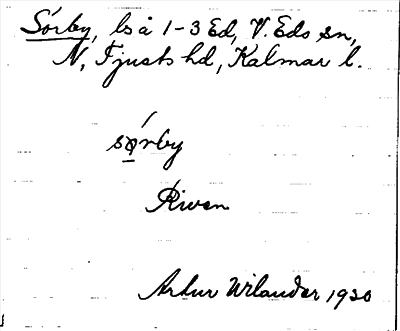 Sörby, ls å 1-3 Ed, V. Eds sn,
N. Tjusts hd, Kalmar l.
sørby
Riven
Artur Wilander 1930